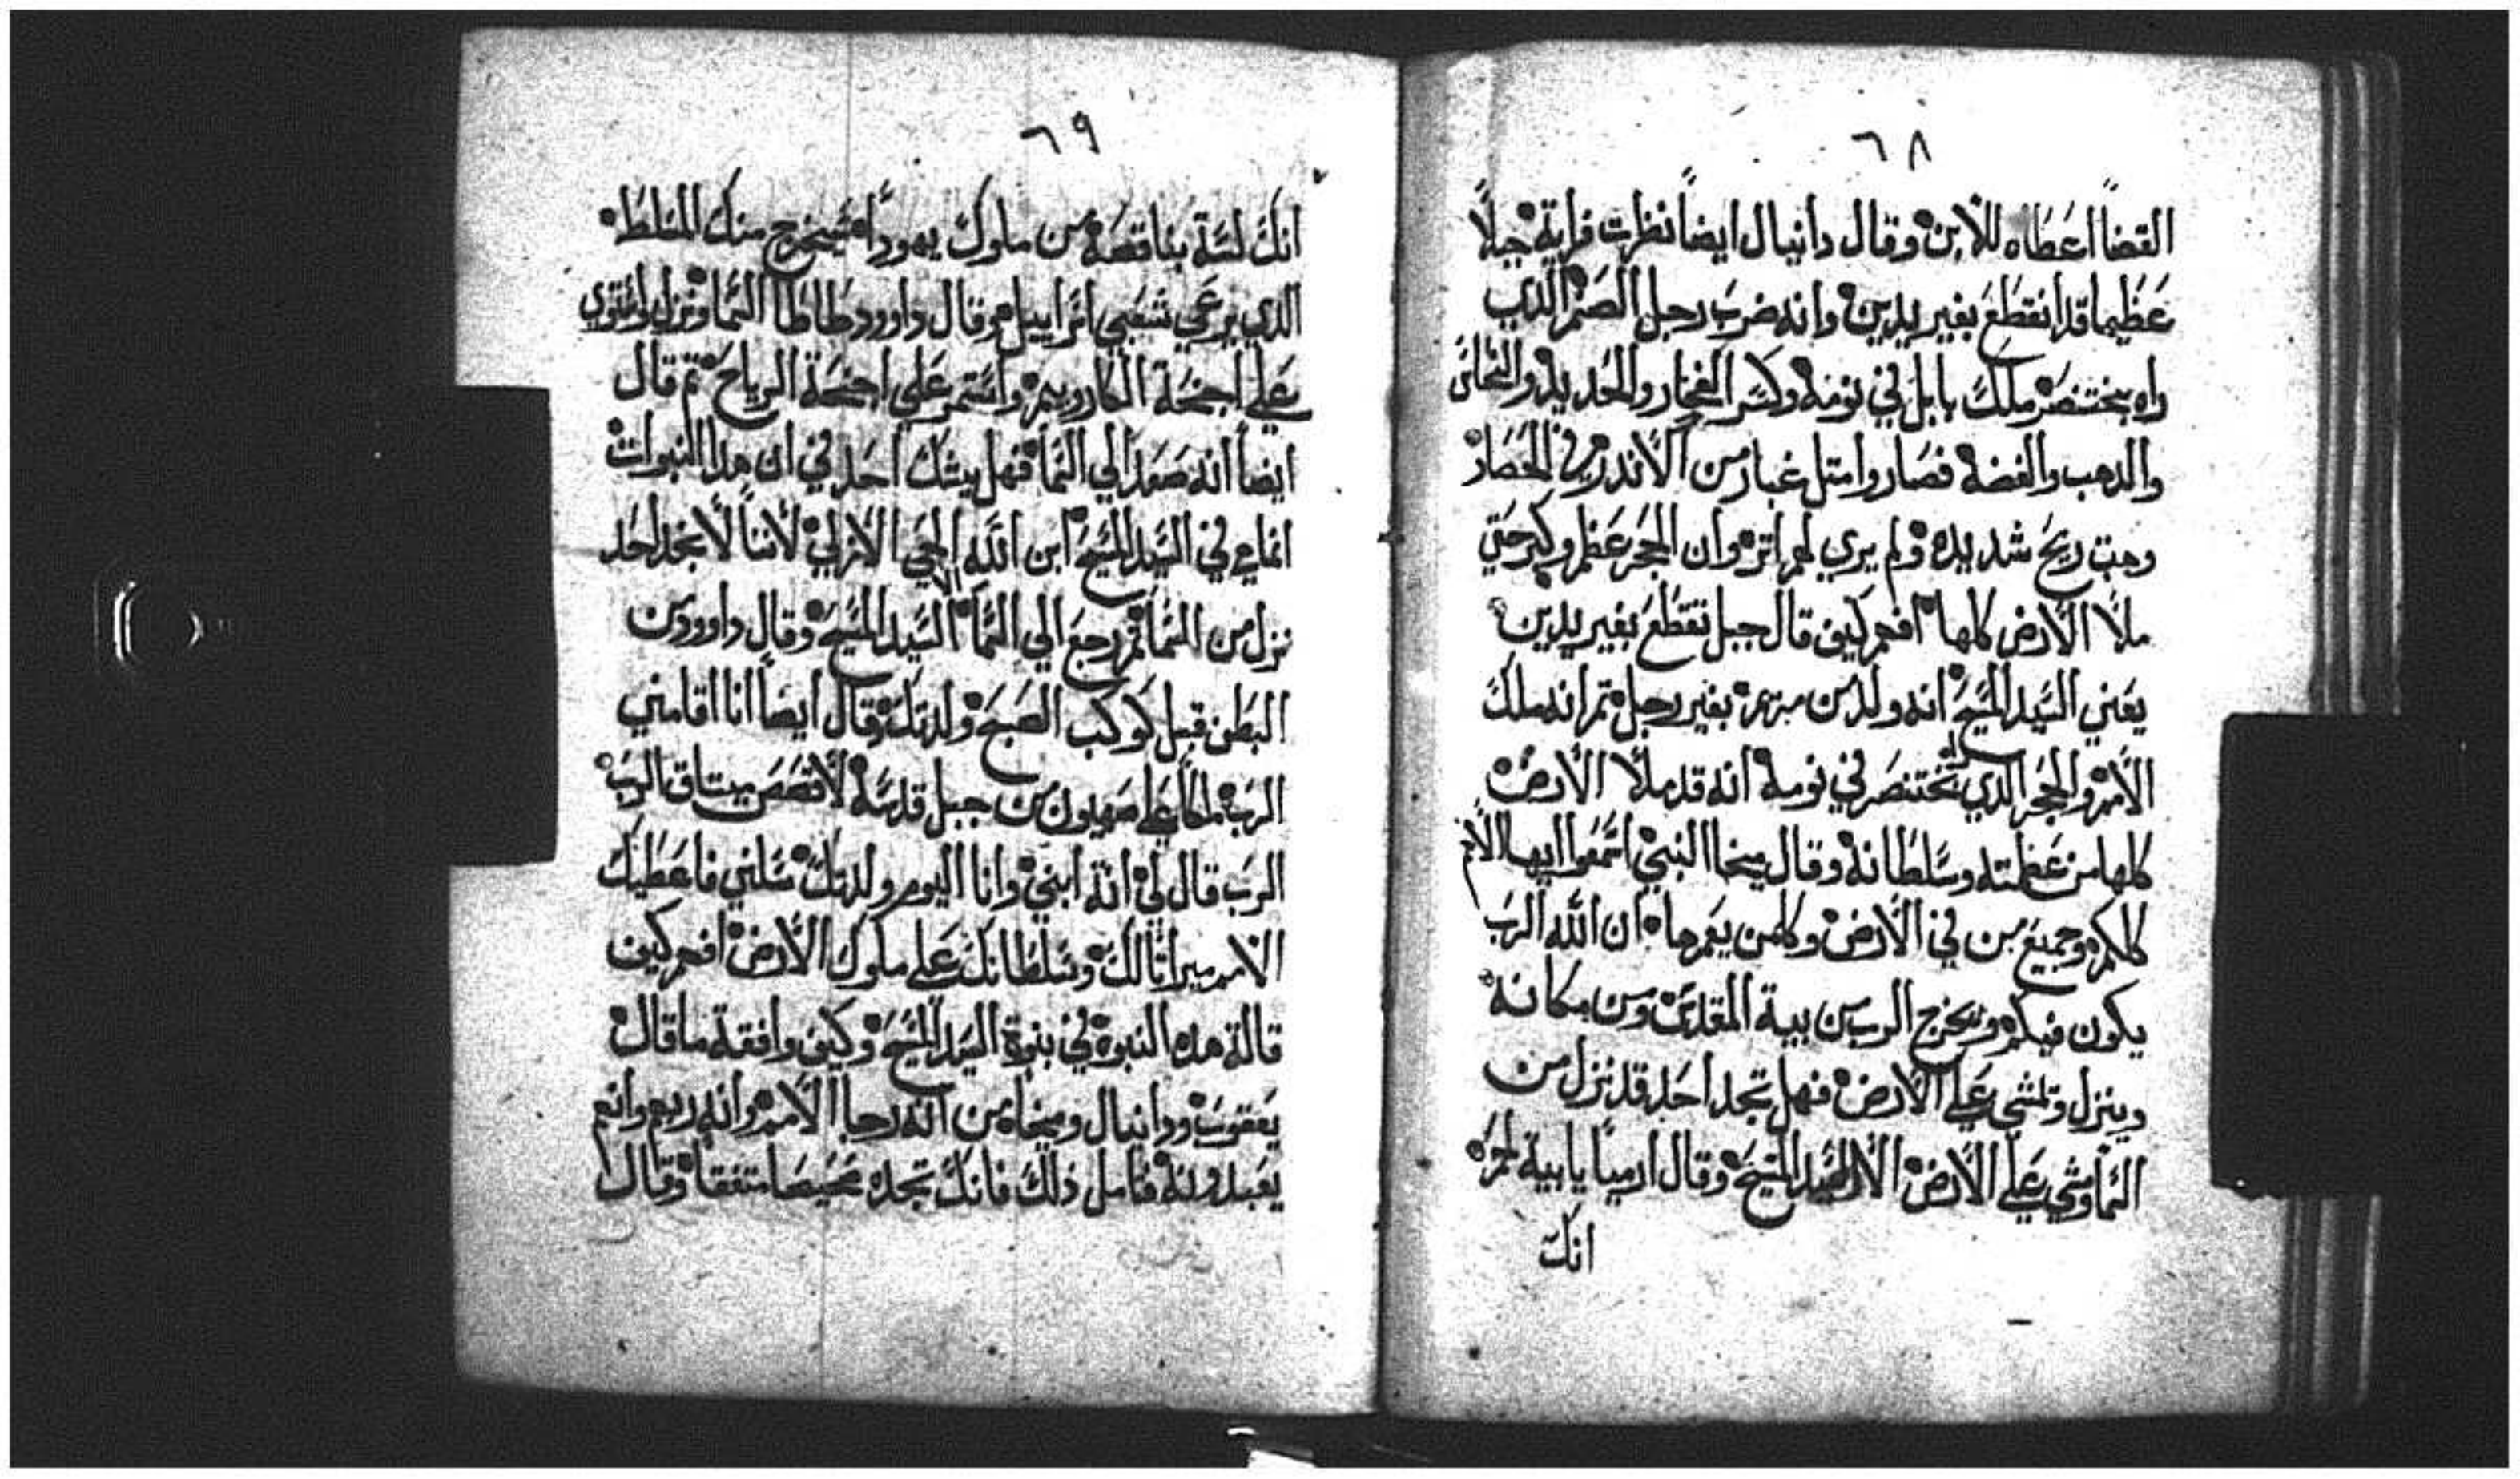 ٦٨
القضا اعطاه للابن وقال دانيال ايضاً نظرت فراية جبلاً
عظيما قد انقطع بغير يدين وانه ضرب رجل الصنم الدي
راه بختنصر ملك بابل في نومه وكسر الفخار والحديد والنحاس
والدهب والفضه فصاروا متل غبار من الاندر في الحصاد
وهبت ريح شديده ولم يري لهم اتر وان الحجر عظم وكبر حتي
ملا الارض كلها افهم كيف قال جبل نقطع بغير يدين
يعني السيد المسيح انه ولد من مريم بغير رجل تم انه ملك
الامم والحجر الدي بختنصر في نومه انه قد ملا الارض
كلها من عظمته وسلطانه وقال ميخا النبي اسمعوا ايها الامم
كلكم وجميع من في الارض وكلمن يعمرها ان الله الرب
يكون فيكم ويخرج الرب من بية المقدس ومن مكانه
وينزل وتمشي علي الارض فهل تجد احد قد نزل من
السما ومشي علي الارض الا السيد المسيح وقال ارميا يا بية لحم
انك
٦٩
انك لسة بناقصه من ملوك يهودا سيخرج منك المسلط
الدي يرعي شعبي اسراييل وقال داوود طاطا السما ونزل واستوي
علي اجنحة الكاروبيم واستمر علي اجنحة الرياح تم قال
ايضا انه صعد الي السما فهل يشك احد في ان هدا النبوات
انما هي في السيد المسيح ابن الله الحي الازلي لاننا لا نجد احد
نزل من السما تم رجع الي السما الا السيد المسيح وقال داوود من
البطن قبل كوكب الصبح ولدتك وقال ايضاً انا اقامني
الرب ملكاً علي صهيون من جبل قدسه لاقصص ميتاق الرب
الرب قال لي انة ابني وانا اليوم ولدتك سلني فاعطيك
الامم ميراتا لك وسلطانك علي ملوك الارض افهم كيف
قالة هده النبوه في بنوة السيد المسيح وكيف وافقة ما قال
يعقوب ودانيال وميخا من انه رجا الامم وانه ربهم وانهم
يعبدونه فتامل دلك فانك تجده متفقا وقال